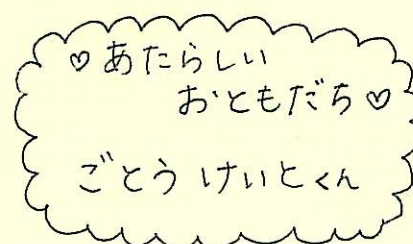 ♡あたらしい
おともだち♡
ごとうけいとくん